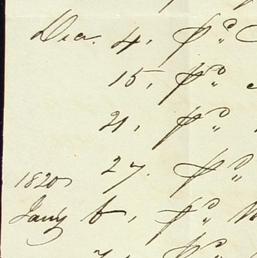 Dec. 4, pd
15, pd
21, pd
27. pd
1820
Jany 6, pd